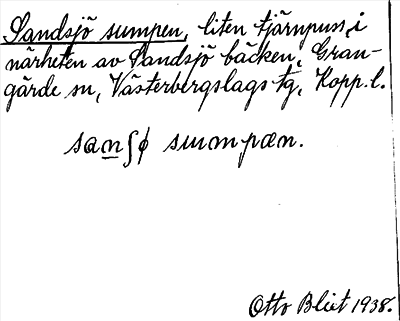 Sandsjö sumpen, liten tjärnpuss, i
närheten av Sandsjö bäcken, Gran-
gärde sn, Västerbergslags tg, Kopp. l.
san̲ʃɸ sumpæn.
Otto Blixt 1938.